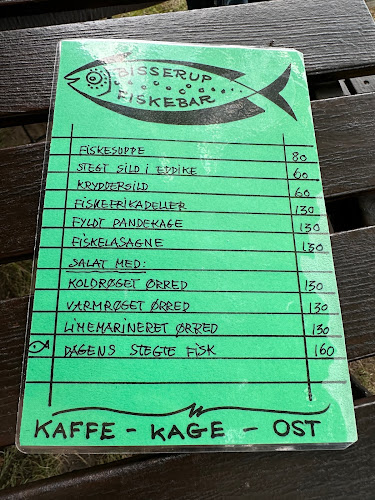 BISSERUP
FISKEBAR
FISKESUPPE 80
STEGT SILD I EDDIKE 60
KRYDDERSILD 60
FISKEFRIKADELLER 130
FYLDT PANDEKAGE 130
FISKELASAGNE 130
SALAT MED:
KOLDRØGET ØRRED 130
VARMRØGET ØRRED 130
LIMEMARINERET ØRRED 130
DAGENS STEGTE FISK 160
KAFFE - KAGE - OST